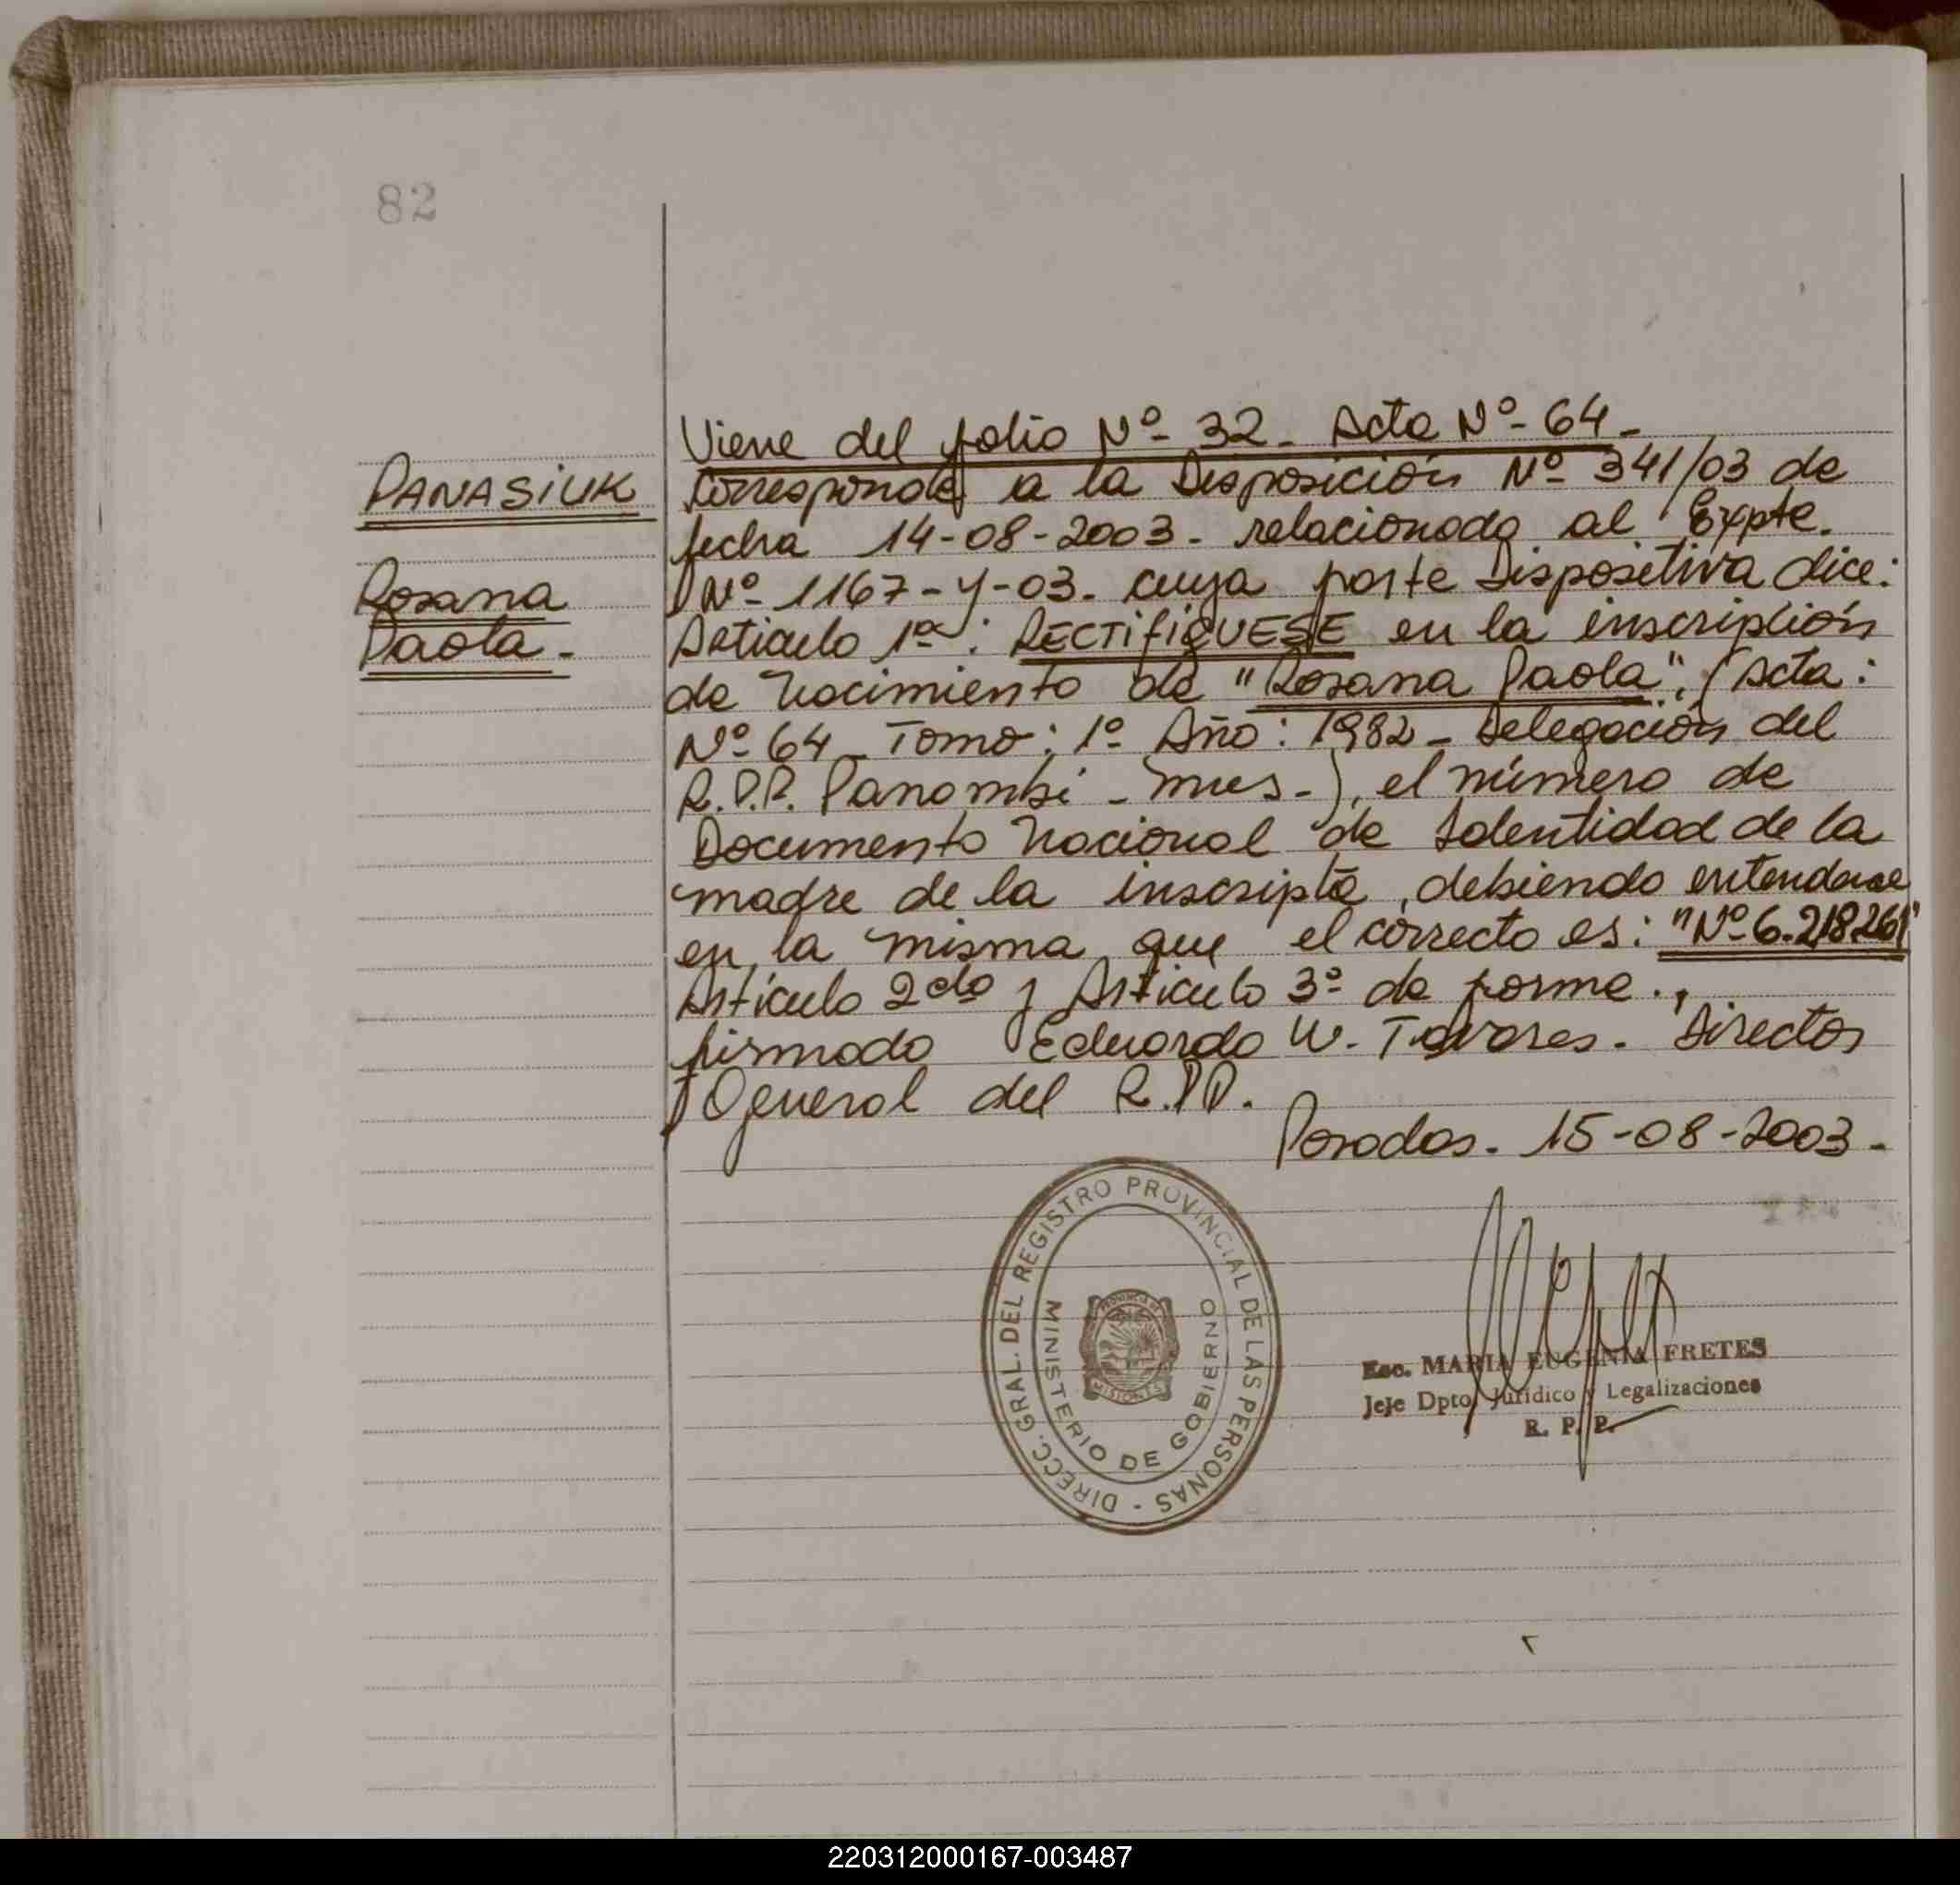 82
PANASIUK
Rosana
Paola -
Viene del folio Nº 32 - Acta Nº 64 -
Corresponde a la Disposición Nº 341/03 de
fecha 14-08-2003 - relacionado al Expte.
Nº 1167-Y-03. cuya parte Dispositiva dice:
Articulo 1º: RECTIFIQUESE en la inscripción
de Nacimiento de "Rosana Paola", (Acta:
Nº 64 - Tomo: 1º Año: 1982 - Delegación del
R.P.P. Panambi - Mnes -), el número de
Documento Nacional de Identidad de la
madre de la inscripta, debiendo entenderse
en la misma que el correcto es: "Nº 6.218.261"
Artículo 2do y Artículo 3º de forma.,
firmado Eduardo W. Tavares. Director
General del R.P.P.
Posadas. 15-08-2003 -
DIRECC. GRAL. DEL REGISTRO PROVINCIAL DE LAS PERSONAS -
MINISTERIO DE GOBIERNO
PROVINCIA DE
MISIONES
Esc. MARIA EUGENIA FRETES
Jefe Dpto. Jurídico y Legalizaciones
R. P. P.
220312000167-003487